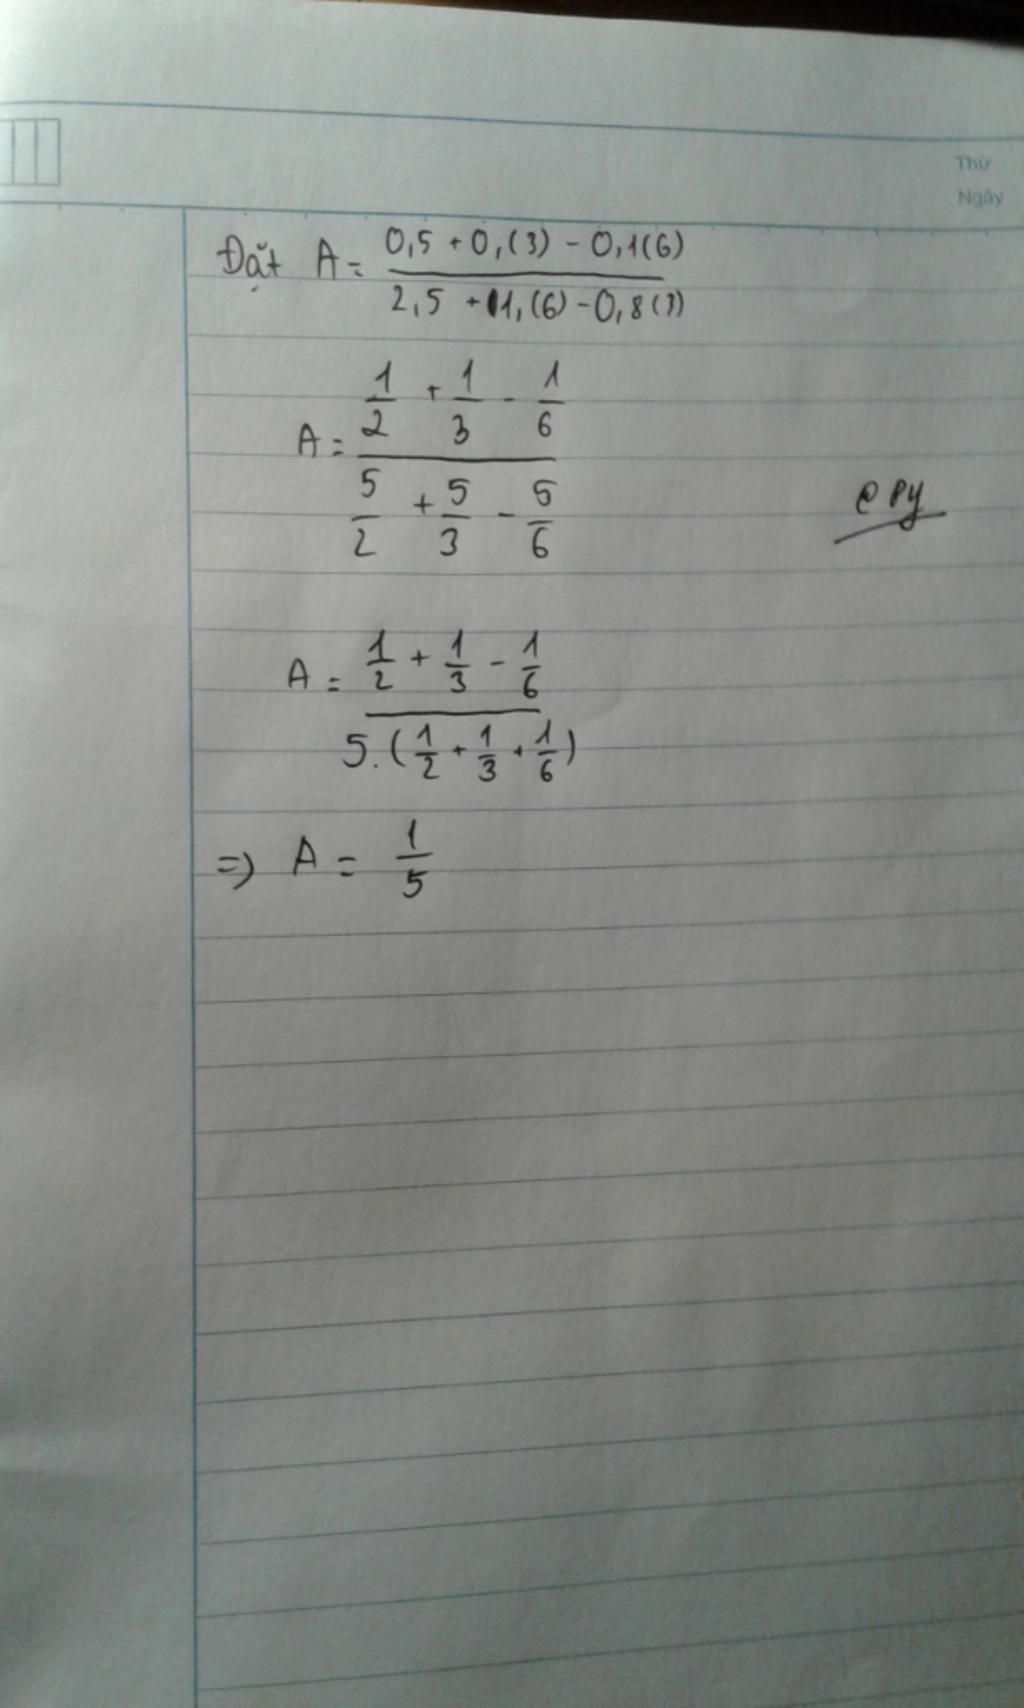 Thứ
Ngày
Đặt A = \frac{0,5 + 0,(3) - 0,1(6)}{2,5 + 1,(6) - 0,8(3)}
A = \frac{\frac{1}{2} + \frac{1}{3} - \frac{1}{6}}{\frac{5}{2} + \frac{5}{3} - \frac{5}{6}}
@ PY
A = \frac{\frac{1}{2} + \frac{1}{3} - \frac{1}{6}}{5.(\frac{1}{2} + \frac{1}{3} + \frac{1}{6})}
=) A = \frac{1}{5}